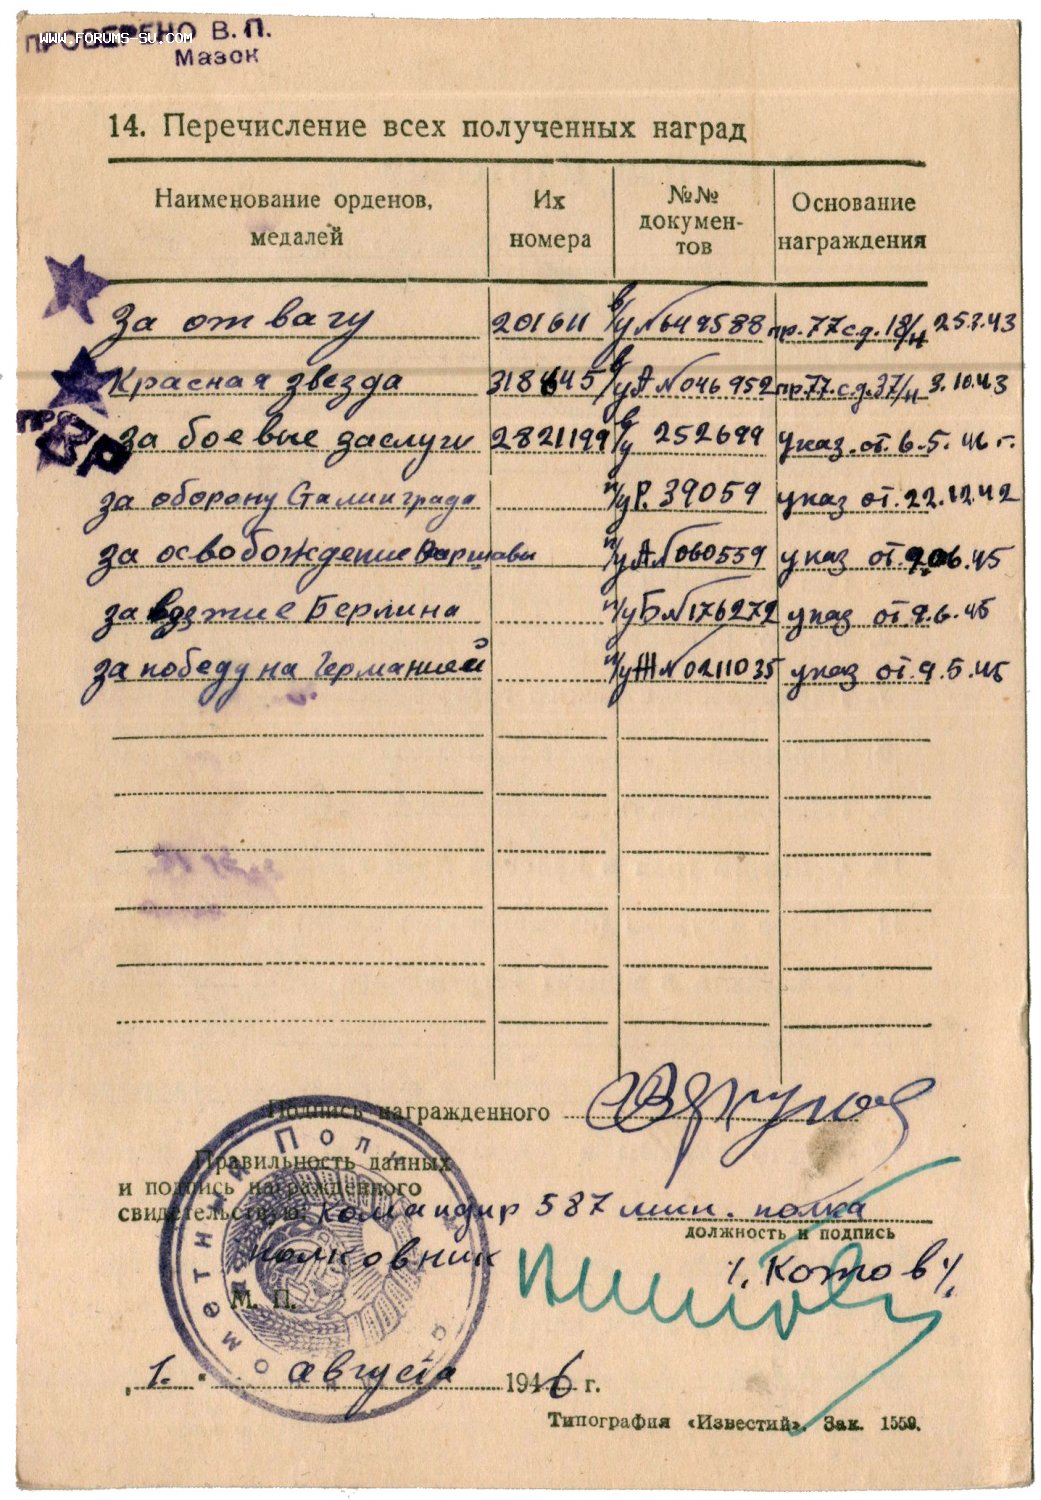 WWW.FORUMS-SU.COM
ПРОВЕРЕНО В. П.
Мазок
14. Перечисление всех полученных наград
Наименование орденов, медалей
Их номера
№№ докумен-тов
Основание награждения
За отвагу 201611 в/у № 649588 пр. 77 с.д. 18/н 25.3.43
Красная звезда 318645 в/у А № 046952 пр. 77 с.д. 37/н 3.10.43
За боевые заслуги 2821199 в/у 252699 указ. от. 6.5.46 г.
за оборону Сталинграда п/у Р. 39059 указ от. 22.12.42
за освобождение Варшавы п/у А № 060559 указ от. 9.06.45
за взятие Берлина п/у Б № 176272 указ от. 9.6.45
за победу на Германией п/у Ж № 0211035 указ от. 9.5.45
Подпись награжденного
Правильность данных
и подпись награжденного
свидетельствую: командир 587 мин. полка
должность и подпись
полковник /. Котов /.
М. П.
„1.“ августа 1946 г.
Типография «Известий». Зак. 1559.